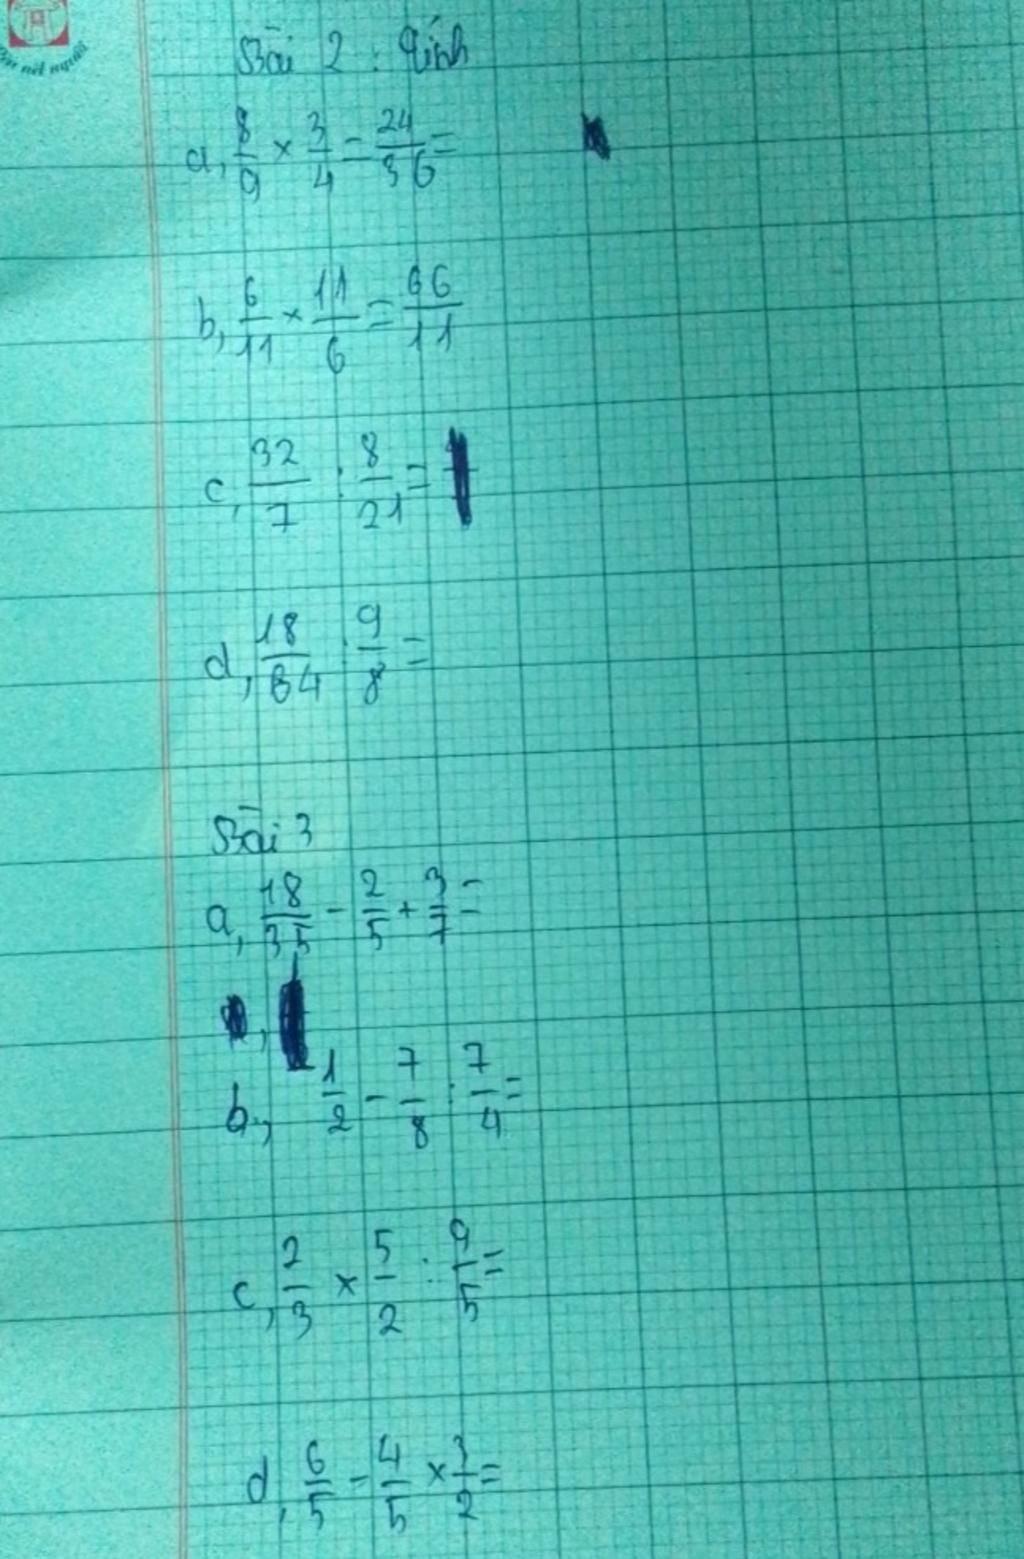 nét người
Bài 2 : Tính
a, 8/9 × 3/4 = 24/36 =
b, 6/11 × 11/6 = 66/11
c, 32/7 : 8/21 =
d, 18/64 : 9/8 =
Bài 3
a, 18/35 - 2/5 + 3/7 =
b, 1/2 - 7/8 : 7/4 =
c, 2/3 × 5/2 : 9/5 =
d, 6/5 - 4/5 × 3/2 =